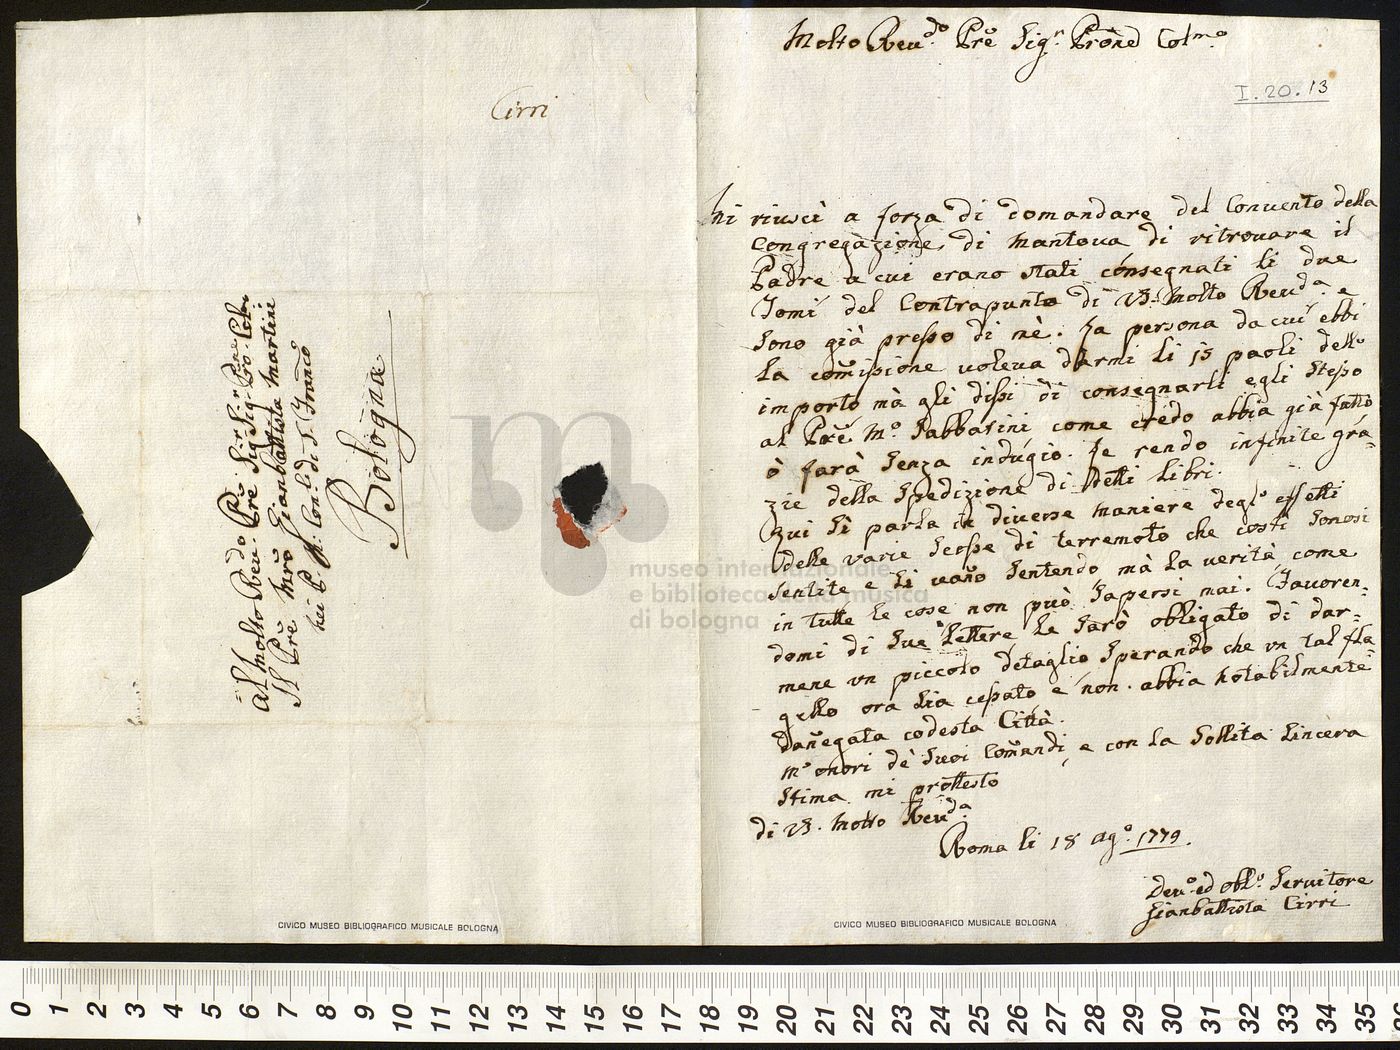 Cirri
Al Molto Revdo Prẽ Sigr Sigr Prone Colmo
Il Prẽ Mrõ Gianbattista Martini
nei P. P. Con.li di S. Franco
Bologna
Molto Reu.do Prẽ Sigr Prõne Colmo
I.20.13
Mi riuscì a forza di domandare del Conuento della
Congregazione di Mantoua di ritrouare il
Padre a cui erano stati consegnati li due
Tomi del Contrapunto di V.S. Molto Reud.a e
sono già presso di mè. La persona da cui ebbi
la com̃isione voleua darmi li 15 paoli dello
importo mà gli dissi di consegnarli egli stesso
al Prẽ M.o Sabbatini come credo abbia già fatto
ò farà senza indugio. Le rendo infinite gra-
zie della spedizione di detti Libri.
Qui si parla in diuerse maniere degl' effetti
delle varie scosse di terremoto che costì sonosi
sentite e si vãno sentendo mà la uerità come
in tutte le cose non può sapersi mai. Fauoren-
domi di sue Lettere le sarò obligato di dar-
mene vn piccolo detaglio sperando che vn tal fla-
gello ora sia cessato e non abbia notabilmente
dãnegata codesta Città.
M'onori de' suoi Comãndi, e con la sollita sincera
stima mi prottesto
di V.S. Molto Reud.a
Roma li 18 Ag.o 1779.
Deu.o ed obl.o Seruitore
Gianbattista Cirri
museo internazionale
e biblioteca della musica
di bologna
CIVICO MUSEO BIBLIOGRAFICO MUSICALE BOLOGNA
CIVICO MUSEO BIBLIOGRAFICO MUSICALE BOLOGNA
0 1 2 3 4 5 6 7 8 9 10 11 12 13 14 15 16 17 18 19 20 21 22 23 24 25 26 27 28 29 30 31 32 33 34 35